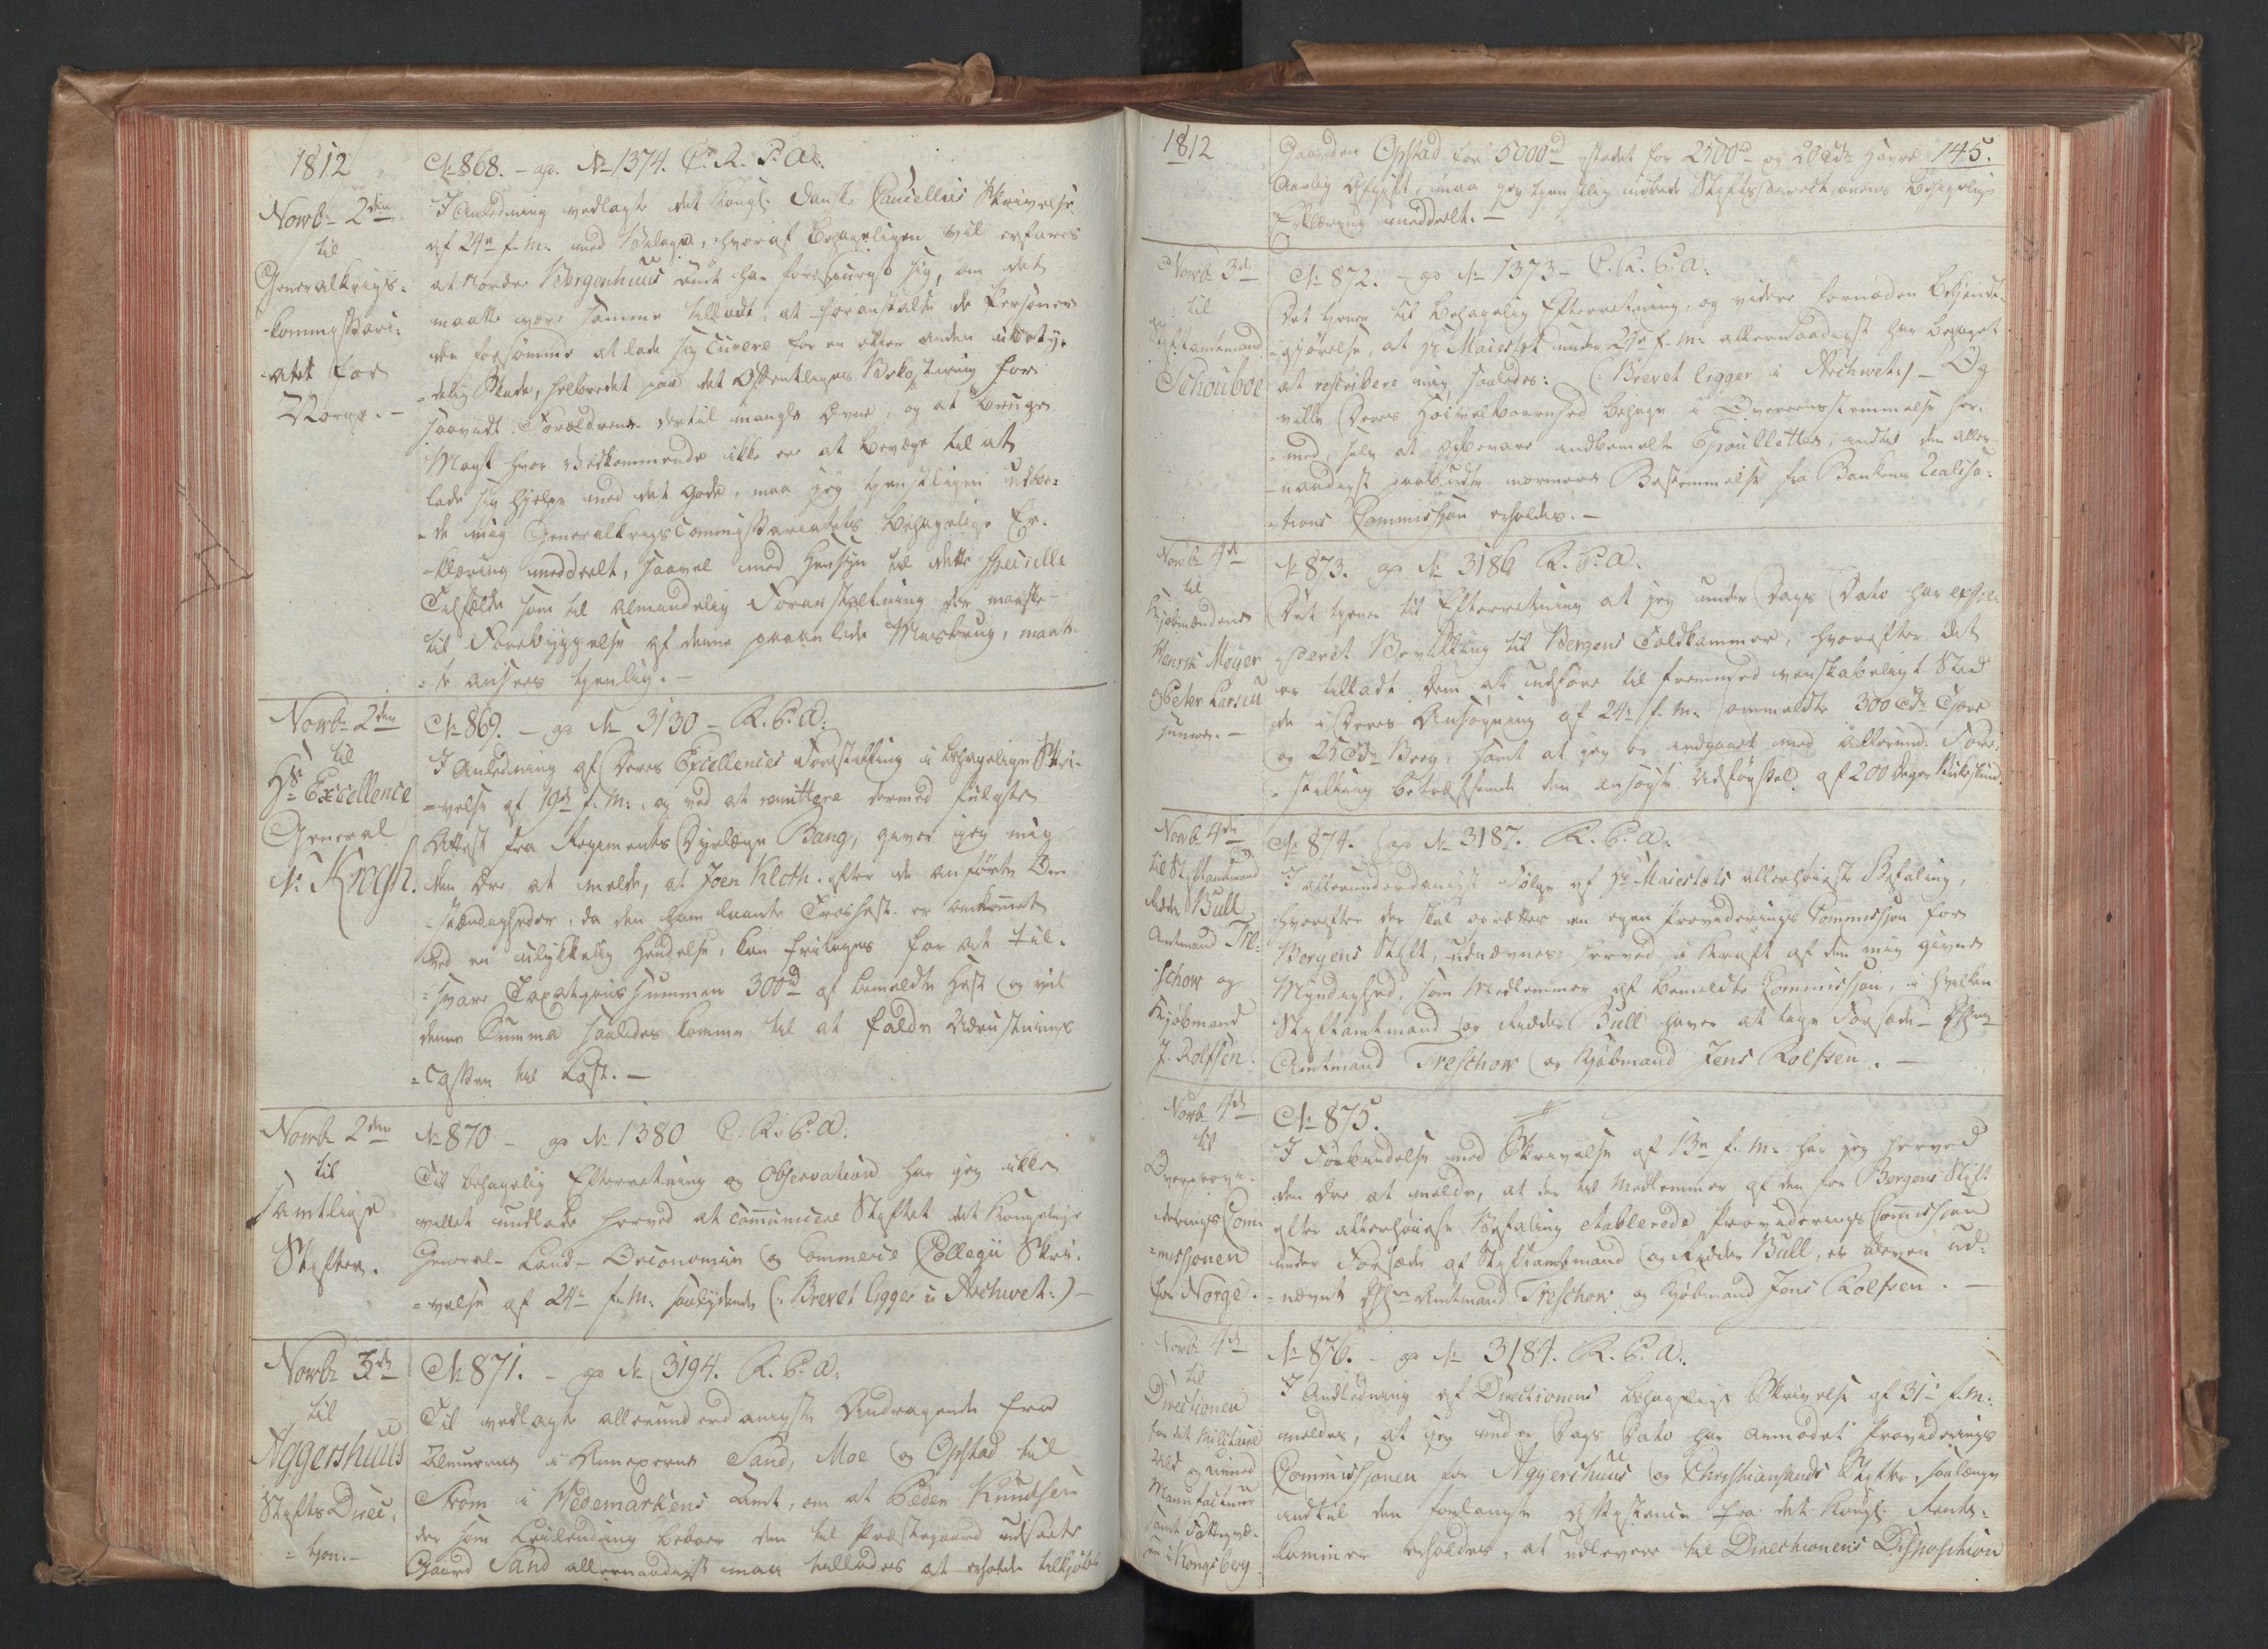 1812
Novb: 2den
til
Generalkrigs-
kommissari-
atet for
Norge. -
No 868. - ao. No 1374. C. R. P. A.
I Anledning vedlagte det Kongl: Danske Cancellies Skrivelse
af 24de f. M: med Bilage, hvoraf behageligen vil erfares
at Nordre Bergenhuus Amt har forespurgt sig, om det
maatte være samme tilladt, at foranstalte de Personer
der forsømme at lade sig curere for en eller anden ubety-
delig Skade, helbredet paa det Offentliges Bekostning for
saavidt Forældrene dertil mangle Evne, og at bruge
Magt hvor Vedkommende ikke ere at bevæge til at
lade sig hjelpe med det gode, maa jeg tjenstligen udbe-
de mig GeneralkrigsCommissariatets behagelige Er-
klæring meddeelt, saavel med Hensyn til dette specielle
Tilfælde som til almindelig Foranstaltning der maatte
til Forebyggelse af denne paaanlede Misbrug, maat-
te ansees tjenlig. -
Novb: 2den
til
Hs Excellence
General
v: Krogh.
No 869. - ao No 3130 - R. C. A.
I Anledning af Deres Excellences Forestilling i behagelige Skri-
velse af 19de f. M:, og ved at remittere dermed fulgte
Attest fra Regiments Dyrlæge Bang, giver jeg mig
den Ære at melde, at Joen Kloth. efter de anførte Om-
stændigheder, da den ham laante Troshest er omkommet
ved en ulykkelig Hendelse, kan fritages for at til-
svare Taxations Summen 300rd af bemeldte Hest og vil
denne Summa saaledes komme til at falde Udrustnings
Cassen til Last. -
Novb: 2den
til
samtlige
Stifter.
No 870 - ao No 1380 C. R. C. A.
Til behagelig Efterretning og Observation har jeg ikke
villet undlade herved at communicere Stiftet det Kongelige
General- Land- Oeconomie og Commerce Collegii Skri-
velse af 24de f. M: saalydende (: Brevet ligger i Archivet :) -
Novb: 3de
til
Aggershuus
Stifts Direc-
tion. -
No 871. - ao No 3194. R. C. A.
Til vedlagte allerunderdanigste Andragende fra
Almuerne i Annexerne Sand, Moe og Opstad til
Strøm i Hedemarkens Amt, om at Peder Knudsen
der som Leilending beboer den til Præstegaard udseete
Gaard Sand allernaadigst maa tillades at erholde tilkjøbs
1812
145.
Gaarden Opstad for 5000rd istedet for 2500rd og 20 Tdr Havre
Aarlig Afgift, maa jeg tjenstlig udbede Stiftsdirectionens behagelige
Erklæring meddeelt. -
Novb: 3de
til
Stiftamtmand
Schouboe
No 872. - ao No 1373 - C. R. C. A.
Det tjener til behagelig Efterretning, og videre fornøden bekjendt-
gjørelse, at Hs Maiestæt under 21de f. M: allernaadigst har behaget
at rescribere mig saaledes: (: Brevet ligger i Archivet :) - Og
ville Deres Høivelbaarenhed behage i Overeensstemmelse her-
med, selv at opbevare indbemelte Epauletter, indtil den aller-
naadigst paabudte nærmere Bestemmelse fra Bankens Realisa-
tions Commission erholdes. -
Novb: 4de
til
Kjøbmændene
Henrik Meyer
& Peter Larsen
junior. -
No 873. ao No 3186 R. C. A.
Det tjener til Efterretning at jeg under Dags Dato har expe-
deret Bevilling til Bergens Toldkammer, hvorefter det
er tilladt Dem at udføre til fremmed venskabeligt Sted
de i Deres Ansøgning af 24de f. M: ommeldte 300 Tdr Tjære
og 25 Tdr Beeg, samt at jeg er indgaaet med allerund: Fore-
stilling betræffende den ansøgte Udførsel af 200 Voger Kukeslund
Novb: 4de
til Stiftamtmand
Ridder Bull
Amtmand Tre-
schow og
Kjøbmand
J. Rolfsen.
No 874. ao No 3187. R. C. A.
I allerunderdanigst Følge af Hs Maiestæts allerhøieste Befaling,
hvorefter der skal oprættes en egen Provideringscommission for
Bergens Stift, udnævnes herved i Kraft af den mig givne
Myndighed, som Medlemmer af bemeldte Commission, i hvilken
Stiftamtmand og Ridder Bull haver at tage Forsæde
Amtmand Treschow og Kjøbmand Jens Rolfsen. -
Novb: 4de
til
Overprovi-
derings Com-
missionen
for Norge.
No 875.
I Forbindelse med Skrivelse af 13de f. M: har jeg herved
den Ære at melde, at der til Medlemmer af den for Bergens Stift
efter allerhøieste Befaling etablerede Provideringscommission
under Forsæde af Stiftamtmand og Ridder Bull, er bleven ud-
nævnt Amtmand Treschow og Kjøbmand Jens Rolfsen. -
Novb: 4de
til
Directionen
for det militaire
Uld og Linned
Manufactuur
samt Fattigvæ-
en i Kongsberg
No 876. - ao No 3184. R. C. A.
I Andledning af Directionens behagelige Skrivelse af 31te f. M:
meldes, at jeg under Dags Dato har anmodet Providerings
Commissionen for Aggershuus og Christiansands Stifter, saalænge
indtil den forlangte Assistence fra det Kongl: Rente-
kammer erholdes, at udlevere til Directionens Disposition